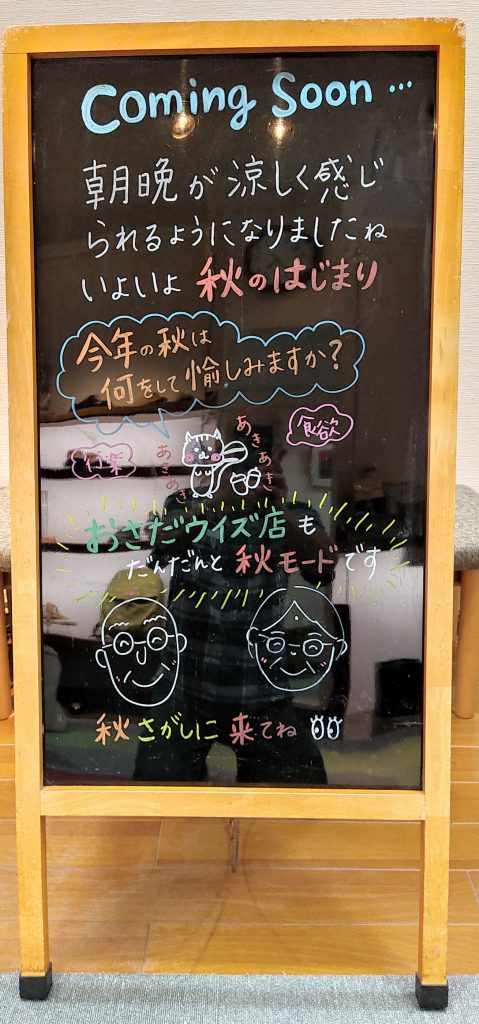 Coming Soon …
朝晩が涼しく感じ
られるようになりましたね
いよいよ 秋のはじまり
今年の秋は
何をして愉しみますか?
食欲
行楽
あきめき
あきあき
おさだウイズ店も
だんだんと 秋モードです
秋さがしに 来てね